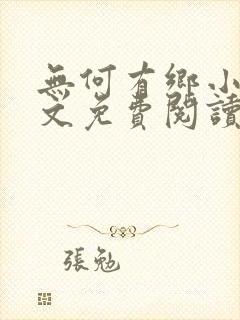 無何有鄉小
文免費閱讀
張勉